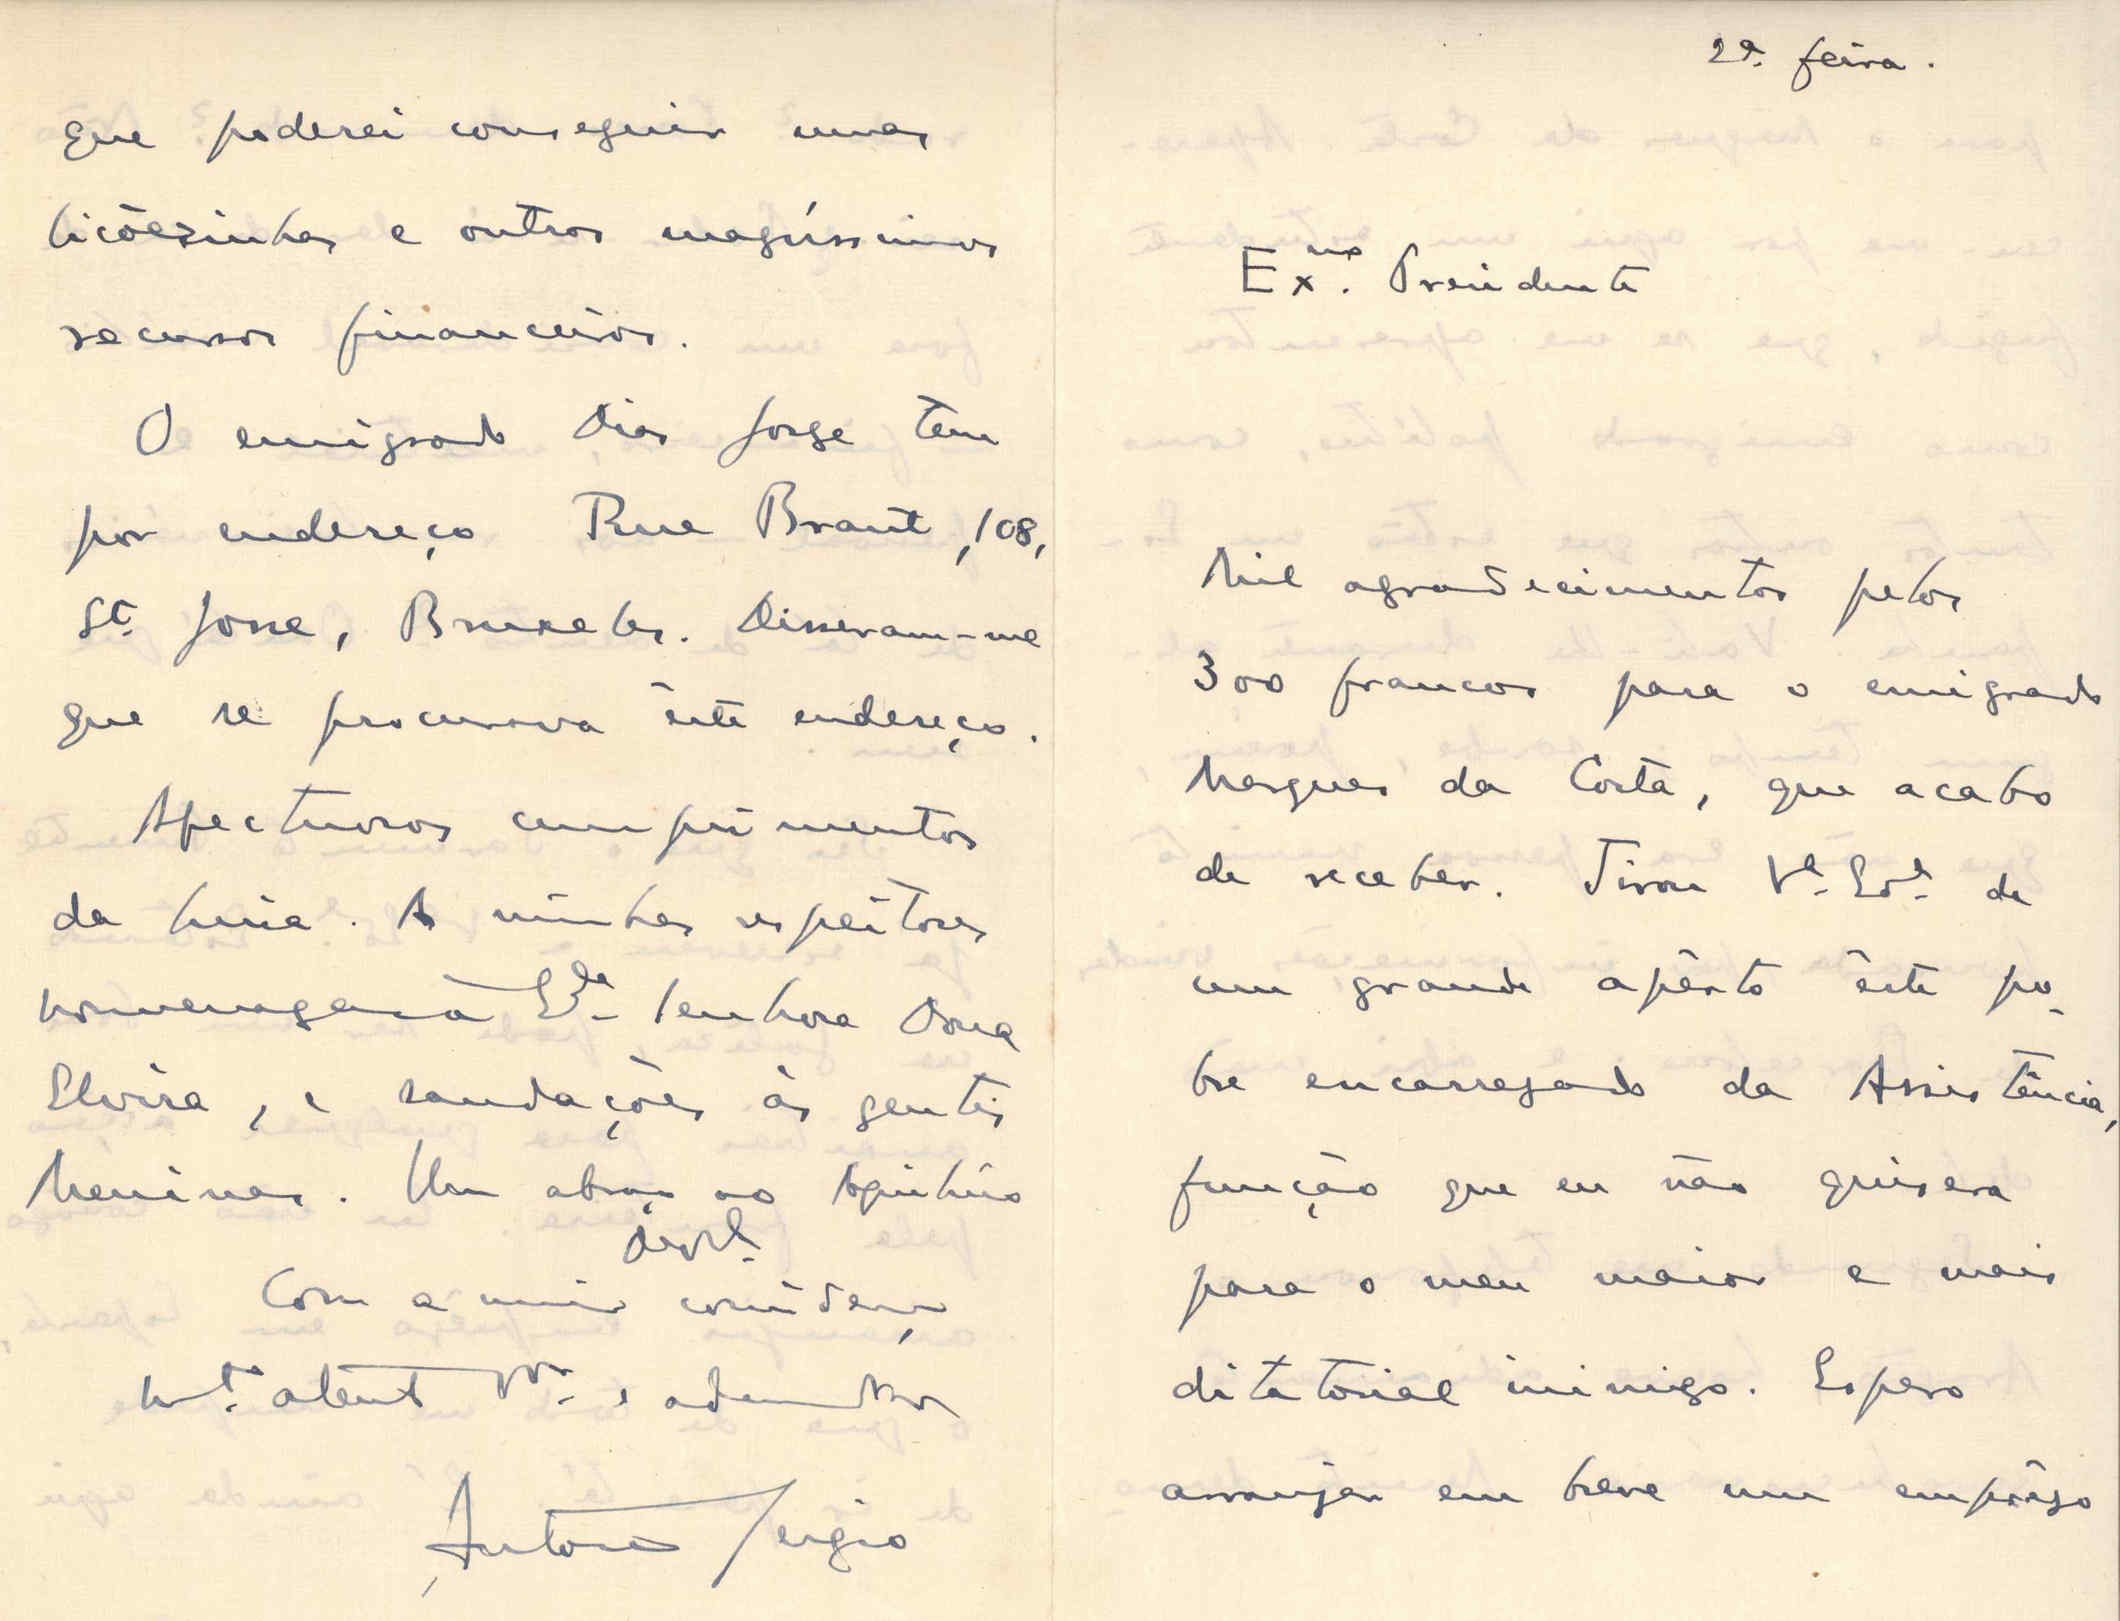 2ª. feira.
Ex.mo Presidente
Mil agradecimentos pelos
300 francos para o emigrado
Marques da Costa, que acabo
de receber. Tirou V.ª Ex.ª de
um grande apêrto êste po-
bre encarregado da Assistência,
função que eu não quisera
para o meu maior e mais
ditatorial inimigo. Espero
arranjar em breve um emprêgo
que poderei conseguir umas
liçõezinhas e outros magríssimos
recursos financeiros.
O emigrado Dias Jorge tem
por endereço Rue Braut, 108,
St. Josse, Bruxelas. Disseram-me
que se procurava êste endereço.
Afectuosos cumprimentos
da Luísa. As minhas respeitosas
homenagens à Ex.ma Senhora Dona
Elvira, e saudações às gentis
Meninas. Um abraço ao Aquilino
Com a maior consideração
M.to atent V.or e admirador
António Sérgio